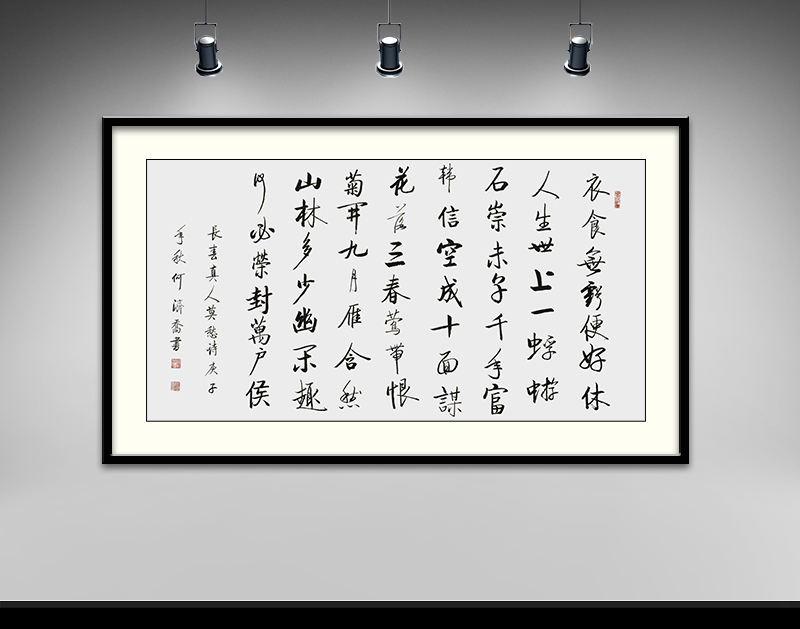 衣食無虧便好休
人生世上一蜉蝣
石崇未享千年富
韩信空成十面謀
花落三春莺帶恨
菊开九月雁含愁
山林多少幽闲趣
何必榮封萬户侯
長春真人莫愁诗庚子
年秋何濟喬書